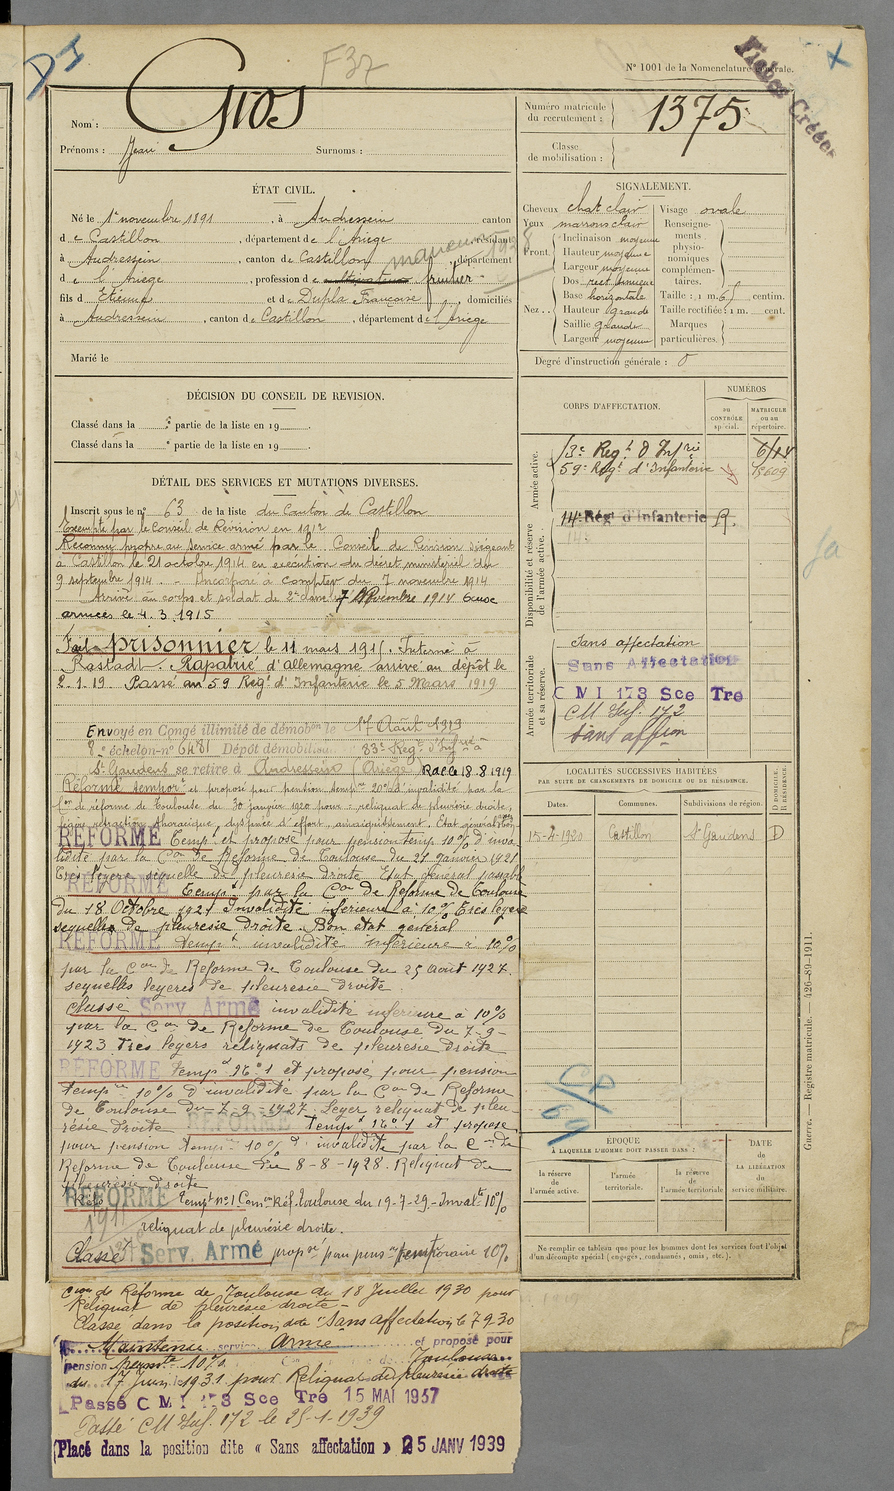 DI
F37
N° 1001 de la Nomenclature générale.
Fiches Créées
Nom : Gros
Prénoms : Jean Surnoms :
Numéro matricule du recrutement : 1375
Classe de mobilisation :
ÉTAT CIVIL.
Né le 1er novembre 1891, à Audressein canton
de Castillon, département de l'Ariège, résidant
à Audressein, canton de Castillon, département
de l'Ariège, profession de cultivateur fruitier
fils d Etienne et de Dupla Françoise, domiciliés
à Audressein, canton de Castillon, département de l'Ariège
Marié le
SIGNALEMENT.
Cheveux chat clair Visage ovale
Yeux marrons clair
Front. Inclinaison moyenne
Hauteur moyenne
Largeur moyenne
Nez... Dos rect. sinueux
Base horizontale
Hauteur grande
Saillie grande
Largeur moyenne
Renseignements physionomiques complémentaires.
Taille : 1 m. 61 centim.
Taille rectifiée : 1 m. cent.
Marques particulières.
Degré d'instruction générale : 0
DÉCISION DU CONSEIL DE REVISION.
Classé dans la e partie de la liste en 19
Classé dans la e partie de la liste en 19
DÉTAIL DES SERVICES ET MUTATIONS DIVERSES.
Inscrit sous le n° 63 de la liste du Canton de Castillon
Exempté par le Conseil de Revision en 1912
Reconnu propre au service armé par le Conseil de Revision siégeant
à Castillon le 21 octobre 1914 en exécution du décret ministériel du
9 septembre 1914. - Incorporé à compter du 7 novembre 1914
Arrivé au corps et soldat de 2e classe le 7 Novembre 1914 6 aux
armées le 4.3.1915
Fait prisonnier le 11 mars 1915. Interné à
Rastadt. Rapatrié d'allemagne arrivé au dépôt le
2.1.19. Passé au 59 Regt d'Infanterie le 5 Mars 1919
Envoyé en Congé illimité de démobon le 17 Août 1919
8e échelon n° 6481 Dépôt démobilisateur 83e Regt d'Infrie à
St Gaudens se retire à Audressein (Ariège) RdC le 18.8.1919
Réformé tempore et proposé pour pension tempre 20% d'invalidité par la
Con de réforme de Toulouse du 30 janvier 1920 pour : reliquat de pleurésie droite,
légère rétraction thoracique, dyspnée d'effort, amaigrissement. Etat général
RÉFORMÉ Tempt et proposé pour pension temp 10% d'inva
lidité par la Con de Réforme de Toulouse du 27 Janvier 1921
Très légère sequelle de pleurésie droite Etat général passable
RÉFORMÉ Tempt par la Con de Réforme de Toulouse
du 18 Octobre 1921 Invalidité inférieure à 10% Très légère
sequelle de pleurésie droite. Bon état général
RÉFORMÉ tempt invalidité inférieure à 10%
par la Con de Réforme de Toulouse du 25 Août 1922.
sequelles légères de pleurésie droite.
Classé Serv. Armé invalidité inférieure à 10%
par la Con de Réforme de Toulouse du 7-9-
1923 Très légers reliquats de pleurésie droite
RÉFORMÉ tempt N° 1 et proposé pour pension
tempre 10% d'invalidité par la Con de Réforme
de Toulouse du 7-9-1927 Léger reliquat de pleu
résie droite RÉFORMÉ tempt N° 1 et proposé
pour pension tempre 10% d'invalidité par la Con de
Réforme de Toulouse du 8-8-1928. Reliquat de
pleurésie droite
RÉFORMÉ Tempt n° 1 Comon Réf. Toulouse du 19-7-29. Invalté 10%
reliquat de pleurésie droite.
Classé Serv. Armé proposé pour pension temporaire 10%
Cion de Réforme de Toulouse du 18 Juillet 1930 pour
Reliquat de pleurésie droite -
Classé dans la position dite "Sans affectation" le 7 9.30
Maintenu service Armé et proposé pour
pension permte 10% Con de Toulouse
du 17 Juin 1931 pour Reliquat de pleurésie droite
Passé C M I 173 Sce Tré 15 MAI 1937
Passé CM Inf. 172 le 25-1-1939
Placé dans la position dite « Sans affectation » 25 JANV 1939
CORPS D'AFFECTATION.
NUMÉROS
DU CONTRÔLE spécial.
MATRICULE ou au répertoire.
Armée active.
83e Regt d'Infrie
59e Regt d'Infanterie 15609
Disponibilité et réserve de l'armée active.
14e Régt d'Infanterie R.
Armée territoriale et sa réserve.
Sans affectation
Sans Affectation
C M I 173 Sce Tré
CM Inf. 172
Sans affion
LOCALITÉS SUCCESSIVES HABITÉES
PAR SUITE DE CHANGEMENTS DE DOMICILE OU DE RÉSIDENCE.
Dates. Communes. Subdivisions de région. D DOMICILE. R RÉSIDENCE.
15-2-1920 Castillon St Gaudens D
CP/69
ÉPOQUE
À LAQUELLE L'HOMME DOIT PASSER DANS :
la réserve de l'armée active.
l'armée territoriale.
la réserve de l'armée territoriale
DATE DE LA LIBÉRATION du service militaire.
Ne remplir ce tableau que pour les hommes dont les services font l'objet
d'un décompte spécial (engagés, condamnés, omis, etc.).
Guerre. — Registre matricule. — 426-89-1911.